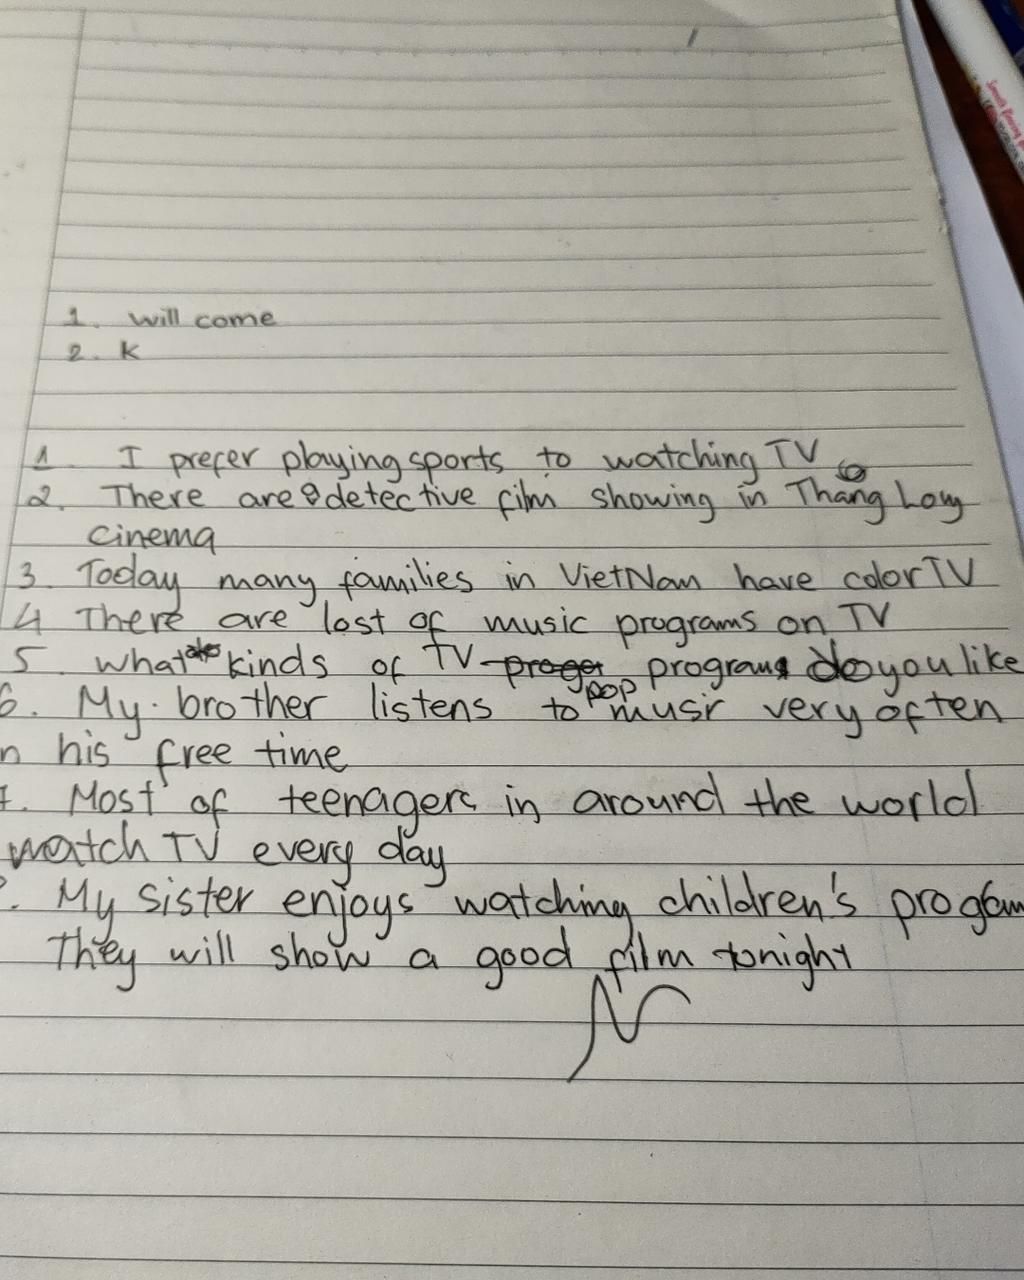 1. will come
2. K
1. I prefer playing sports to watching TV
2. There are detective film showing in Thang Long
cinema
3. Today many families in VietNam have color TV
4 There are lost of music programs on TV
5. what kinds of TV programs do you like
6. My brother listens to pop musir very often
n his free time
7. Most of teenagers in around the world
watch TV every day
. My sister enjoys watching children's program
They will show a good film tonight